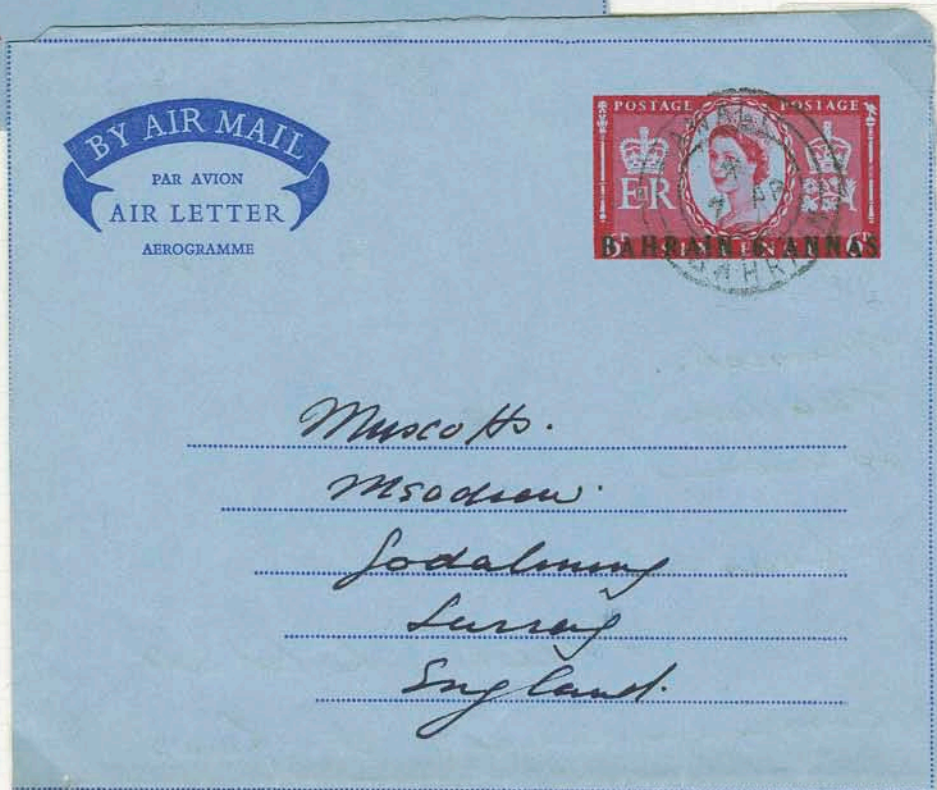 BY AIR MAIL
PAR AVION
AIR LETTER
AEROGRAMME
POSTAGE POSTAGE
E R
BAHRAIN 6 ANNAS
AWALI
BAHRAIN
Muscotts.
Godalming
Surrey
England.